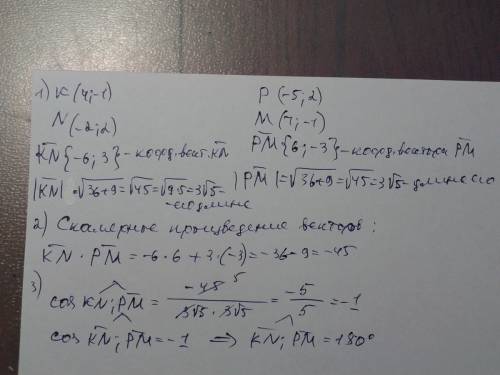 1) K (4;-1)   P (-5;2)
N (-2;2)   M (1;-1)
K̅N̅ {-6;3} - коорд. вект. K̅N̅   P̅M̅ {6;-3} - коорд. вектора P̅M̅
|K̅N̅| = √36+9 = √45 = √9·5 = 3√5 - его длина   |P̅M̅| = √36+9 = √45 = 3√5 - длина его
2) Скалярные произведение векторов:
K̅N̅ · P̅M̅ = -6·6 + 3·(-3) = -36-9 = -45
3) cos K̅N̅;P̅M̅ = -45 5 / 3√5 · 3√5 = -5/5 = -1
cos K̅N̅;P̅M̅ = -1 ⇒ K̅N̅;P̅M̅ = 180°